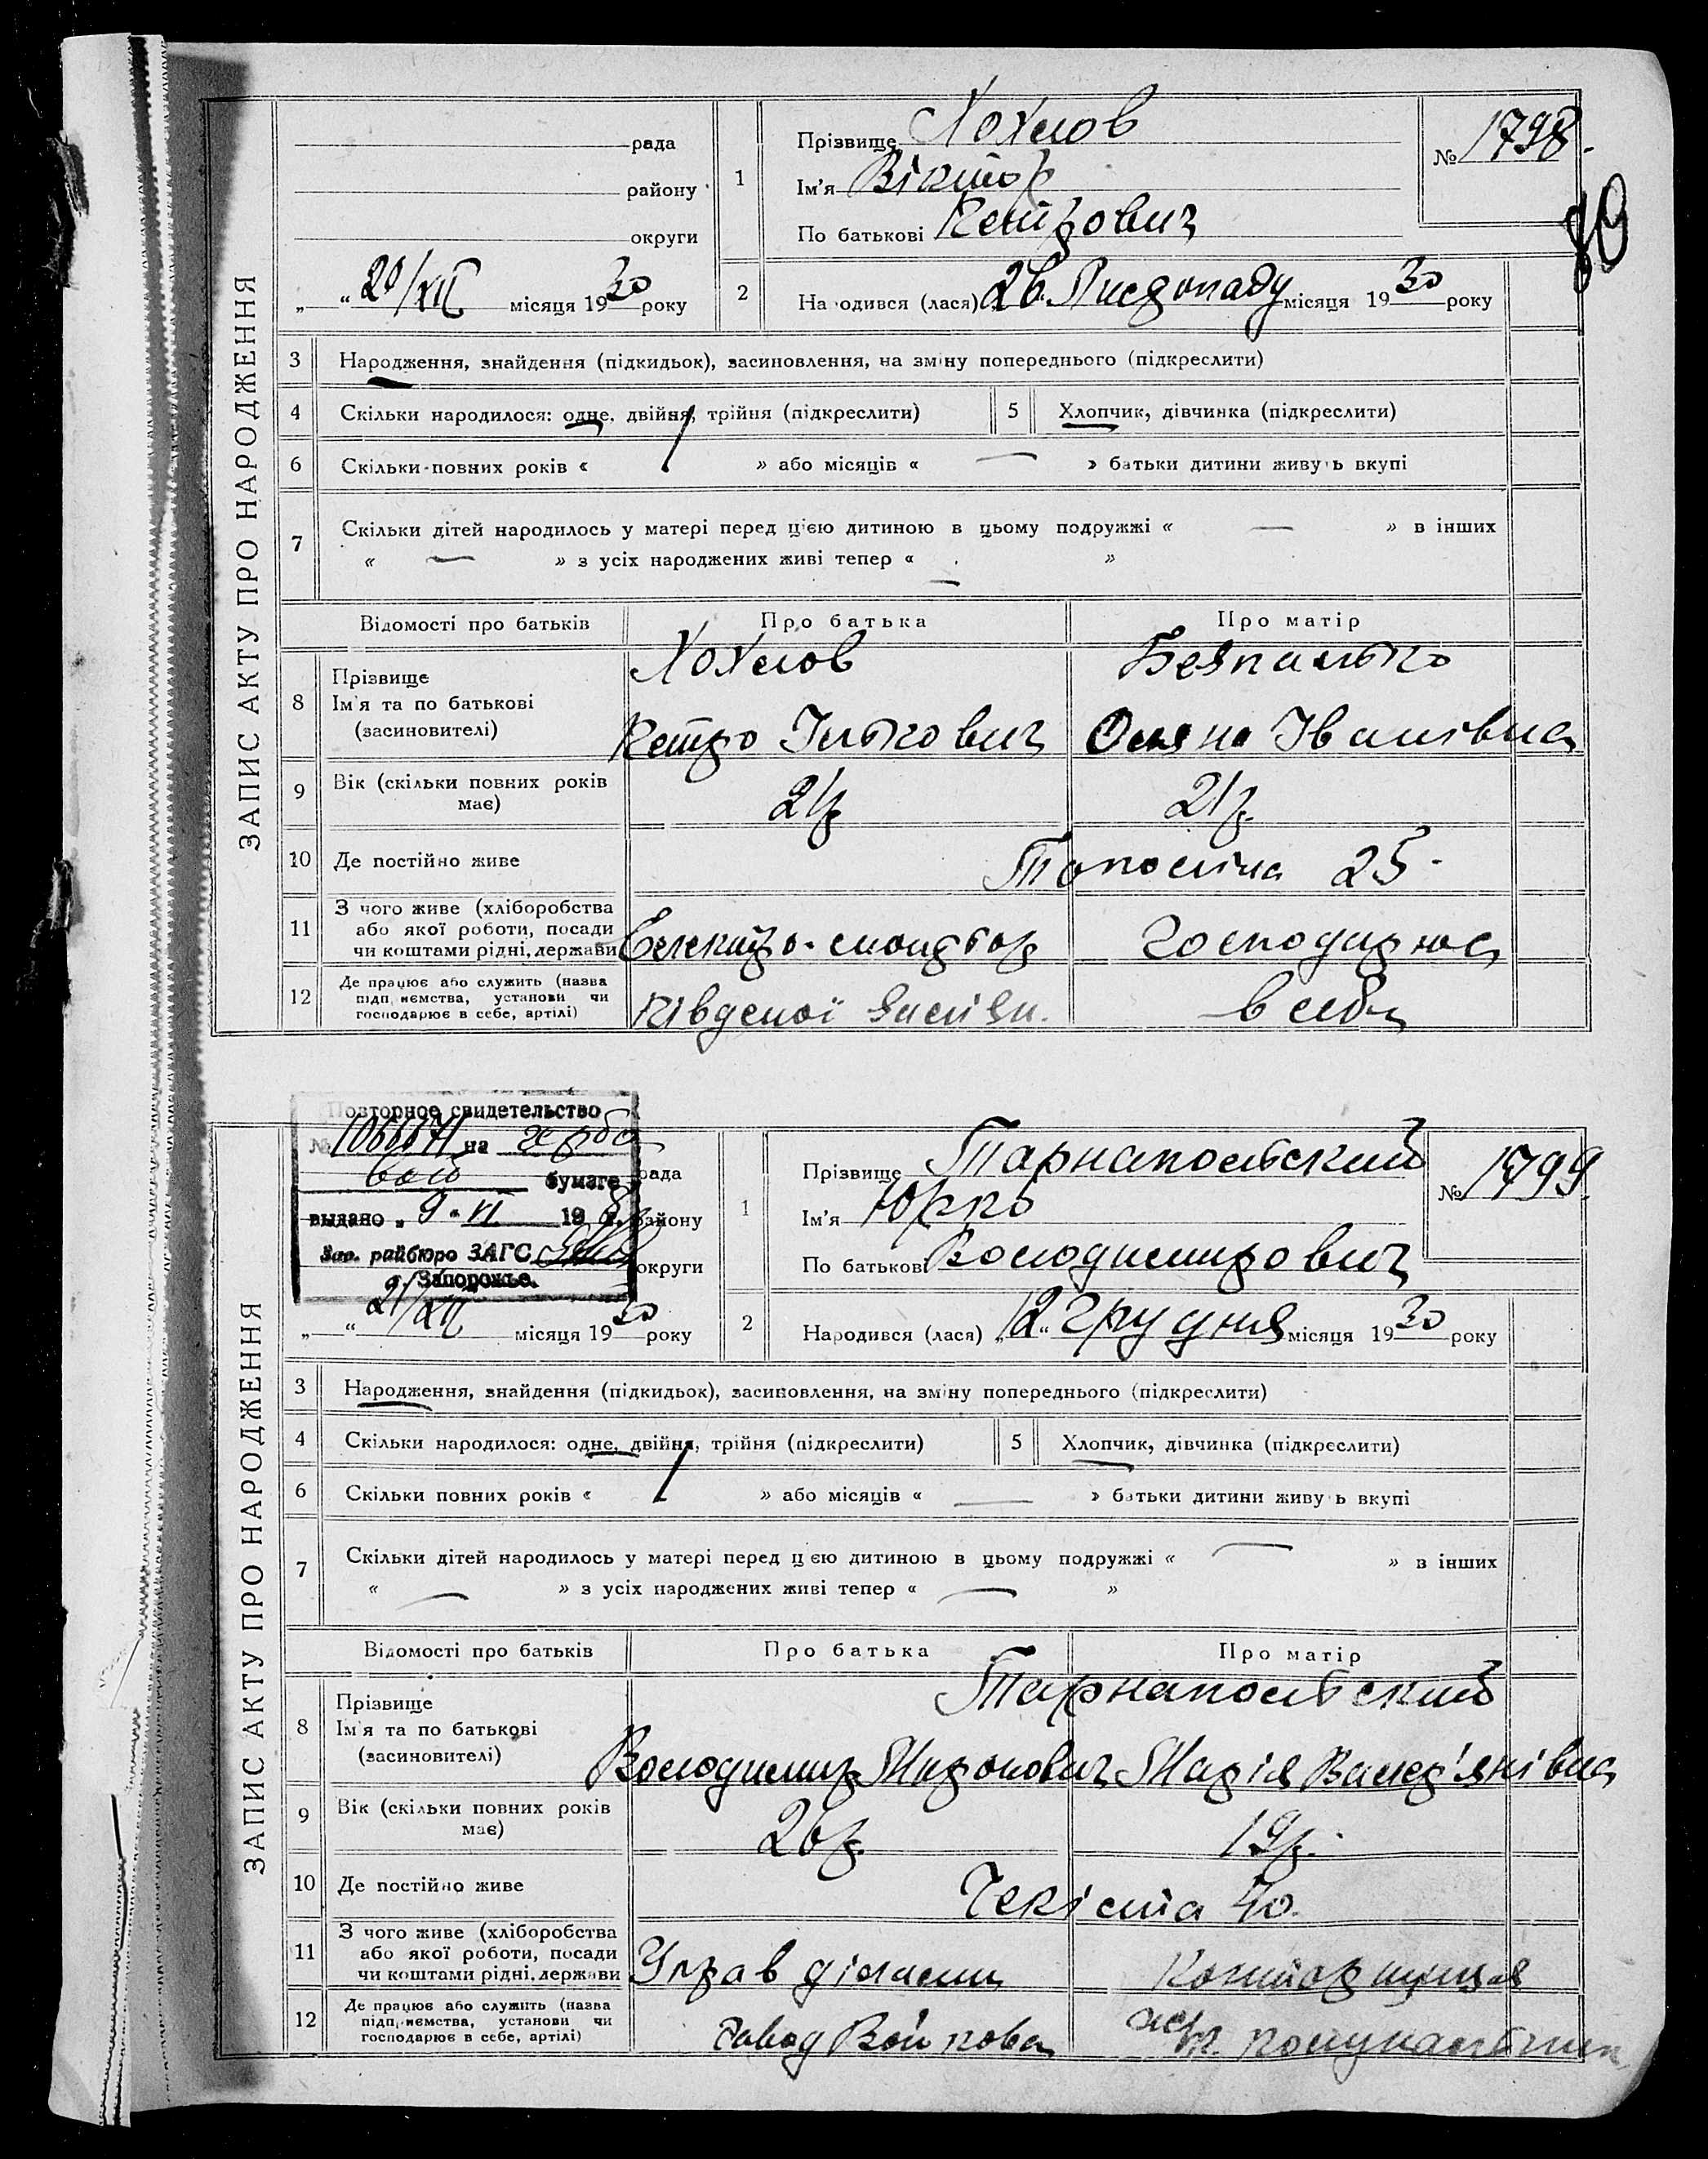 ЗАПИС АКТУ ПРО НАРОДЖЕННЯ
рада
району
округи
„ “ 20/XII місяця 1930 року
1
Прізвище Хохлов
Ім'я Віктор
По батькові Петрович
№ 1798.
80
2
Народився (лася) 26. Листопаду місяця 1930 року
3 Народження, знайдення (підкидьок), засиновлення, на зміну попереднього (підкреслити)
4 Скільки народилося: одне, двійня, трійня (підкреслити)
5 Хлопчик, дівчинка (підкреслити)
6 Скільки повних років « 1 » або місяців « — » батьки дитини живуть вкупі
7 Скільки дітей народилось у матері перед цією дитиною в цьому подружжі « — » в інших
« — » з усіх народжених живі тепер « — »
Відомості про батьків Про батька Про матір
8 Прізвище
Ім'я та по батькові
(засиновителі)
Хохлов Безпалько
ПетроІлькович Оляна Іванівна
9 Вік (скільки повних років
має)
21р 21р.
10 Де постійно живе Тополіна 25
11 З чого живе (хліборобства
або якої роботи, посади
чи коштами рідні, держави
Електро-монтьор Господарює
12 Де працює або служить (назва
підприємства, установи чи
господарює в себе, артілі)
Південої в себе
ЗАПИС АКТУ ПРО НАРОДЖЕННЯ
Повторное свидетельство
№ на гербо
вой бумаге
выдано „ 9 “ VI 19
Зав. райбюро ЗАГС
г. Запорожье.
рада
району
округи
„ “ 21/XII місяця 1930 року
1
Прізвище Тарнапольский
Ім'я Юрко
По батькові Володимирович
№ 1799.
2
Народився (лася) „12“ грудня місяця 1930 року
3 Народження, знайдення (підкидьок), засиновлення, на зміну попереднього (підкреслити)
4 Скільки народилося: одне, двійня, трійня (підкреслити)
5 Хлопчик, дівчинка (підкреслити)
6 Скільки повних років « 1 » або місяців « — » батьки дитини живуть вкупі
7 Скільки дітей народилось у матері перед цією дитиною в цьому подружжі « — » в інших
« — » з усіх народжених живі тепер « — »
Відомості про батьків Про батька Про матір
8 Прізвище
Ім'я та по батькові
(засиновителі)
Тарнапольский
Володимир Миронович Марія Валер'янівна
9 Вік (скільки повних років
має)
26р. 19р.
10 Де постійно живе Чекіста 40.
11 З чого живе (хліборобства
або якої роботи, посади
чи коштами рідні, держави
Управ ділами Конторщиця
12 Де працює або служить (назва
підприємства, установи чи
господарює в себе, артілі)
завод Войкова